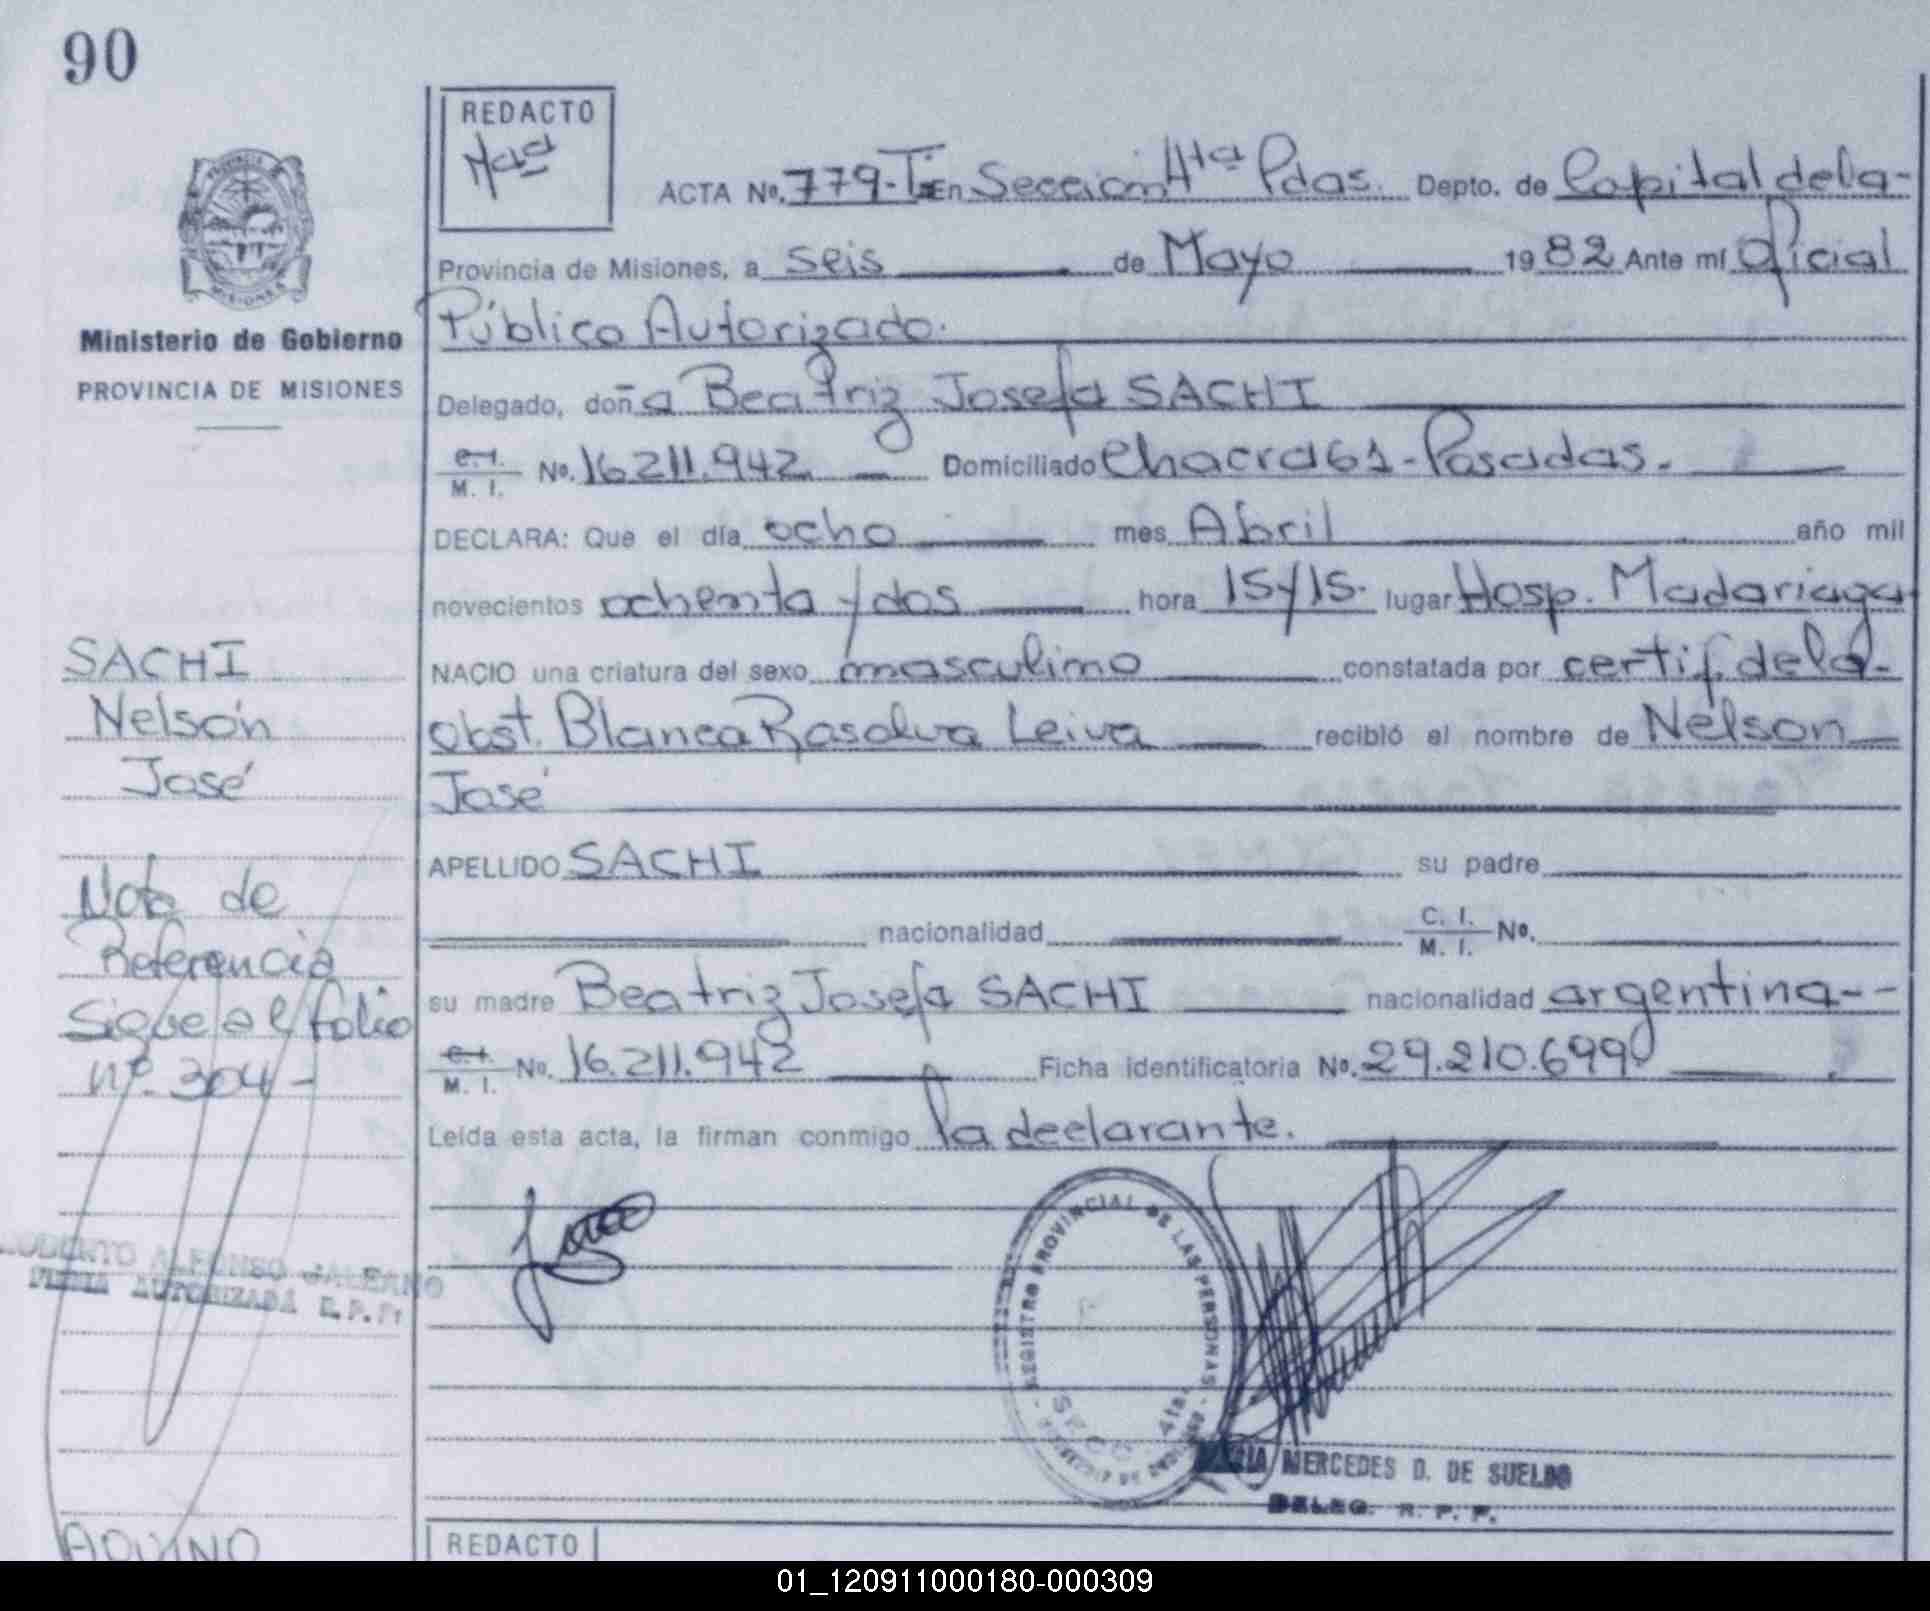 90
REDACTO
ACTA No. 779-T. En Sección 4ta Pdas. Depto. de Capital de la-
Provincia de Misiones, a seis de Mayo 1982 Ante mí Oficial
Público Autorizado.
Delegado, doña Beatriz Josefa SACHI
C. I. / M. I. No. 16.211.942 Domiciliado Chacra 61 - Posadas.
DECLARA: Que el día ocho mes Abril año mil
novecientos ochenta y dos hora 15 y 15. lugar Hosp. Madariaga
NACIO una criatura del sexo masculino constatada por certif. de la-
obst. Blanca Rosalva Leiva recibió el nombre de Nélson
José
APELLIDO SACHI su padre
nacionalidad C. I. / M. I. No.
su madre Beatriz Josefa SACHI nacionalidad argentina--
C. I. / M. I. No. 16.211.942 Ficha identificatoria No. 29.210.699
Leída esta acta, la firman conmigo la declarante.
PROVINCIA
MISIONES
Ministerio de Gobierno
PROVINCIA DE MISIONES
SACHI
Nelsón
José
Nota de
Referencia
Sigue al folio
nº. 304-
ALFONSO
FIRMA AUTORIZADA R. P. P.
REGISTRO PROVINCIAL DE LAS PERSONAS
SECC. 4ta.
MARIA MERCEDES D. DE SUELDO
DELEG. R. P. P.
AQUINO
REDACTO
01_120911000180-000309